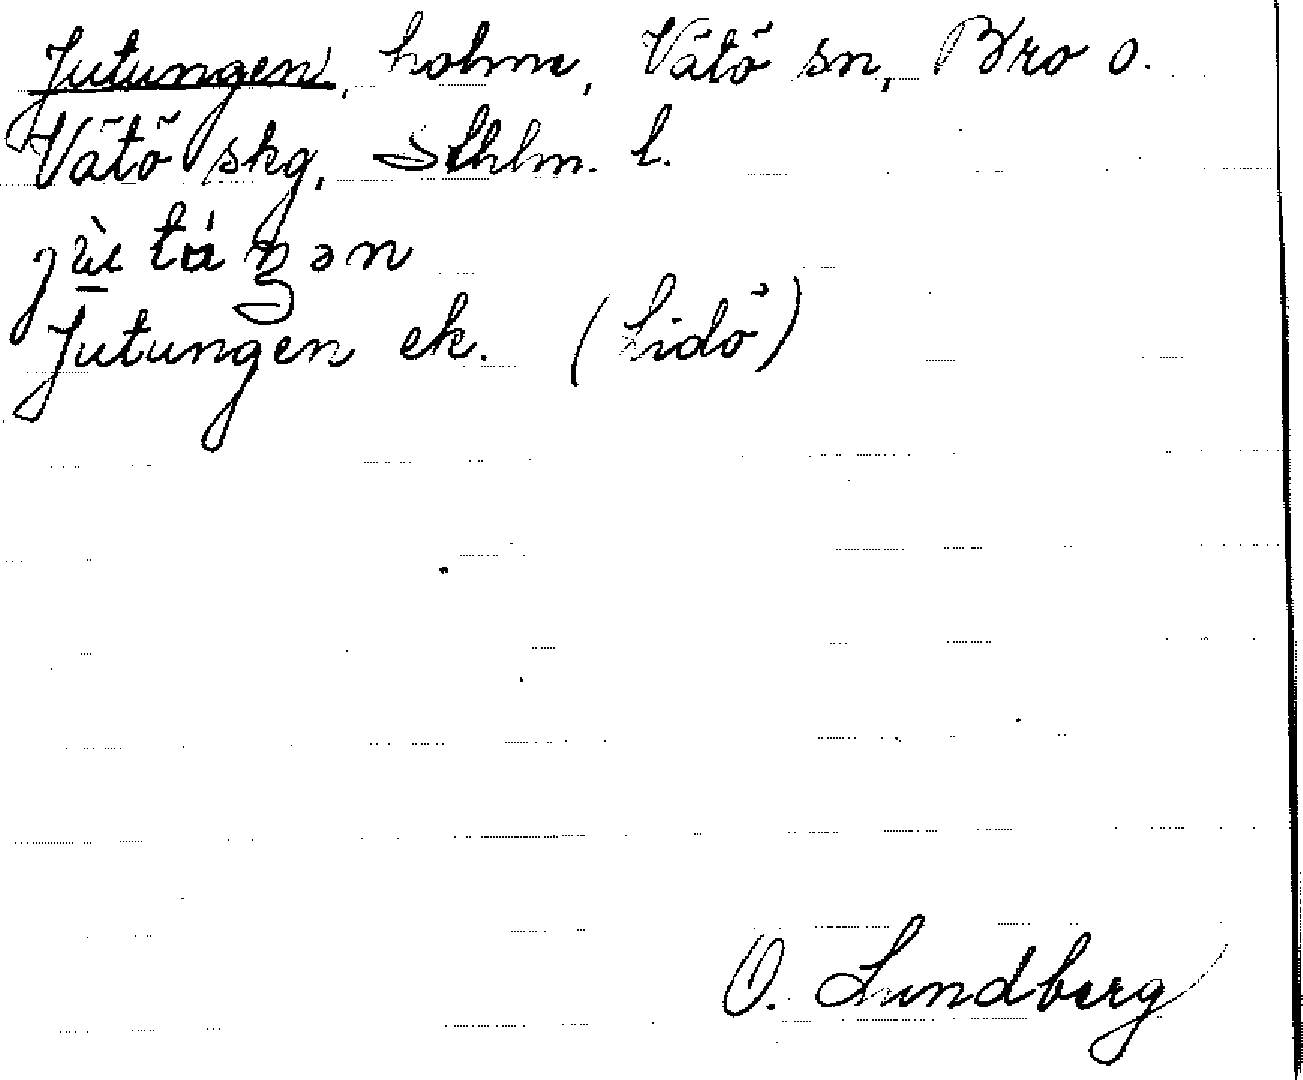 Jutungen, holme, Vätö sn, Bro o.
Vätö skg, Sthlm. l.
Jutungen ek. (Lidö)
O. Lundberg